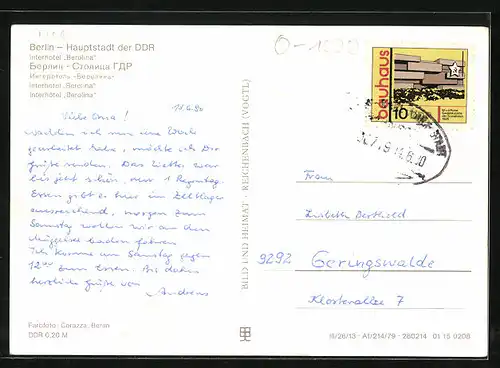 Berlin – Hauptstadt der DDR
Interhotel „Berolina“
Берлин - Столица ГДР
Интеротель „Беролина“
Interhotel „Berolina“
Interhotel „Berolina“
Liebe Oma!
ich nun eine Woche
gearbeitet habe, möchte ich Dir
Grüße senden. Das Wetter war
bis jetzt schön, nur 1 Regentag.
Essen gibt es hier im Zeltlager
ausreichend, morgen zum
Samstag wollen wir an den
Müggelsee baden fahren
Ich komme am Samstag gegen
12⁰⁰ zum Essen. Bis dahin
herzliche Grüße von
Andreas
Farbfoto: Corazza, Berlin
DDR 0,20 M
BILD UND HEIMAT · REICHENBACH (VOGTL)
0-1020
bauhaus
10
DDR
Frau
Lisbeth Berthold
9292 Geringswalde
Klosterallee 7
III/26/13 · A1/214/79 · 280214 01 15 0208